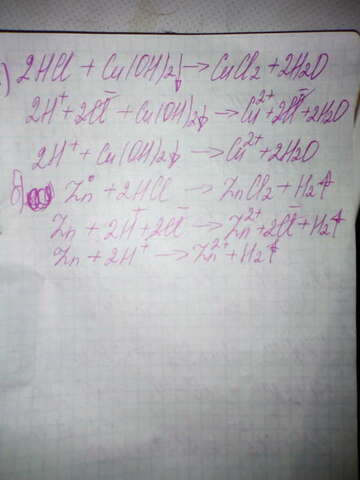 ) 2HCl + Cu(OH)2↓ → CuCl2 + 2H2O
2H⁺ + 2Cl⁻ + Cu(OH)2↓ → Cu²⁺ + 2Cl⁻ + 2H2O
2H⁺ + Cu(OH)2↓ → Cu²⁺ + 2H2O
б) Zn⁰ + 2HCl → ZnCl2 + H2↑
Zn + 2H⁺ + 2Cl⁻ → Zn²⁺ + 2Cl⁻ + H2↑
Zn + 2H⁺ → Zn²⁺ + H2↑